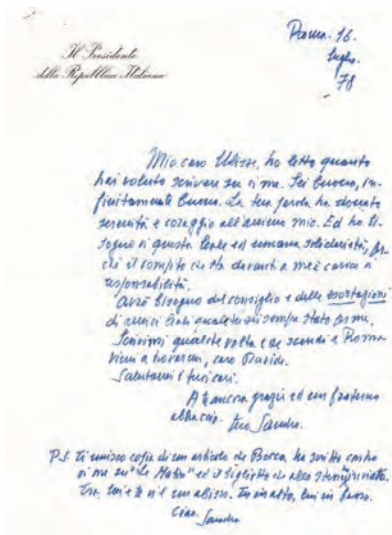 Il Presidente
della Repubblica Italiana
Roma. 16.
luglio.
78
Mio caro Ulisse, ho letto quanto
hai voluto scrivere su di me. Sei buono, in-
finitamente buono. La tua parola ha donato
serenità e coraggio all'animo mio. Ed ho bi-
sogno di questa leale ed umana solidarietà, per-
ché il compito che sta davanti a me è carico di
responsabilità.
Avrò bisogno del consiglio e delle esortazioni
di amici leali quale tu sei sempre stato per me.
Scrivimi qualche volta e se scendi a Roma
vieni a trovarmi, caro Davide.
Salutami i tuoi cari.
A te ancora grazie ed un fraterno
abbraccio. tuo Sandro.
P.S. Ti unisco copia di un articolo che Bocca, ha scritto contro
di me su "Le Matin" ed il biglietto che allo
Tra lui e te vi è un abisso. Tu in alto, lui in basso.
Ciao. Sandro